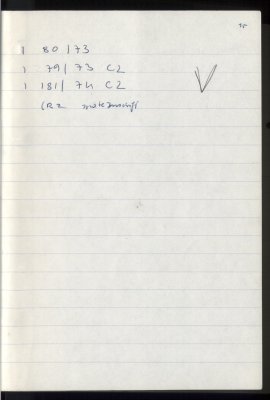 35
1 80/73
1 79/73 CZ
1 181/74 CZ
(RZ